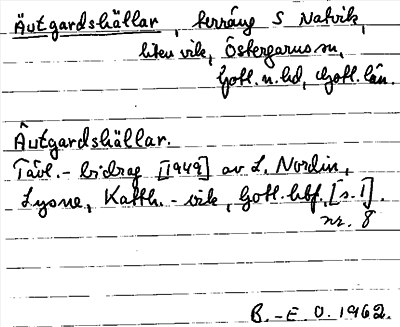 Äutgardshällar, terräng S Natvik,
liten vik, Östergarns sn,
Gotl. n. hd, Gotl. län.
Äutgardshällar.
Tävl.-bidrag [1949] av L. Nordin,
Lysne, Katth.-vik, Gotl. hbf. [s. 1].
nr. 8
B.-E. O. 1962.